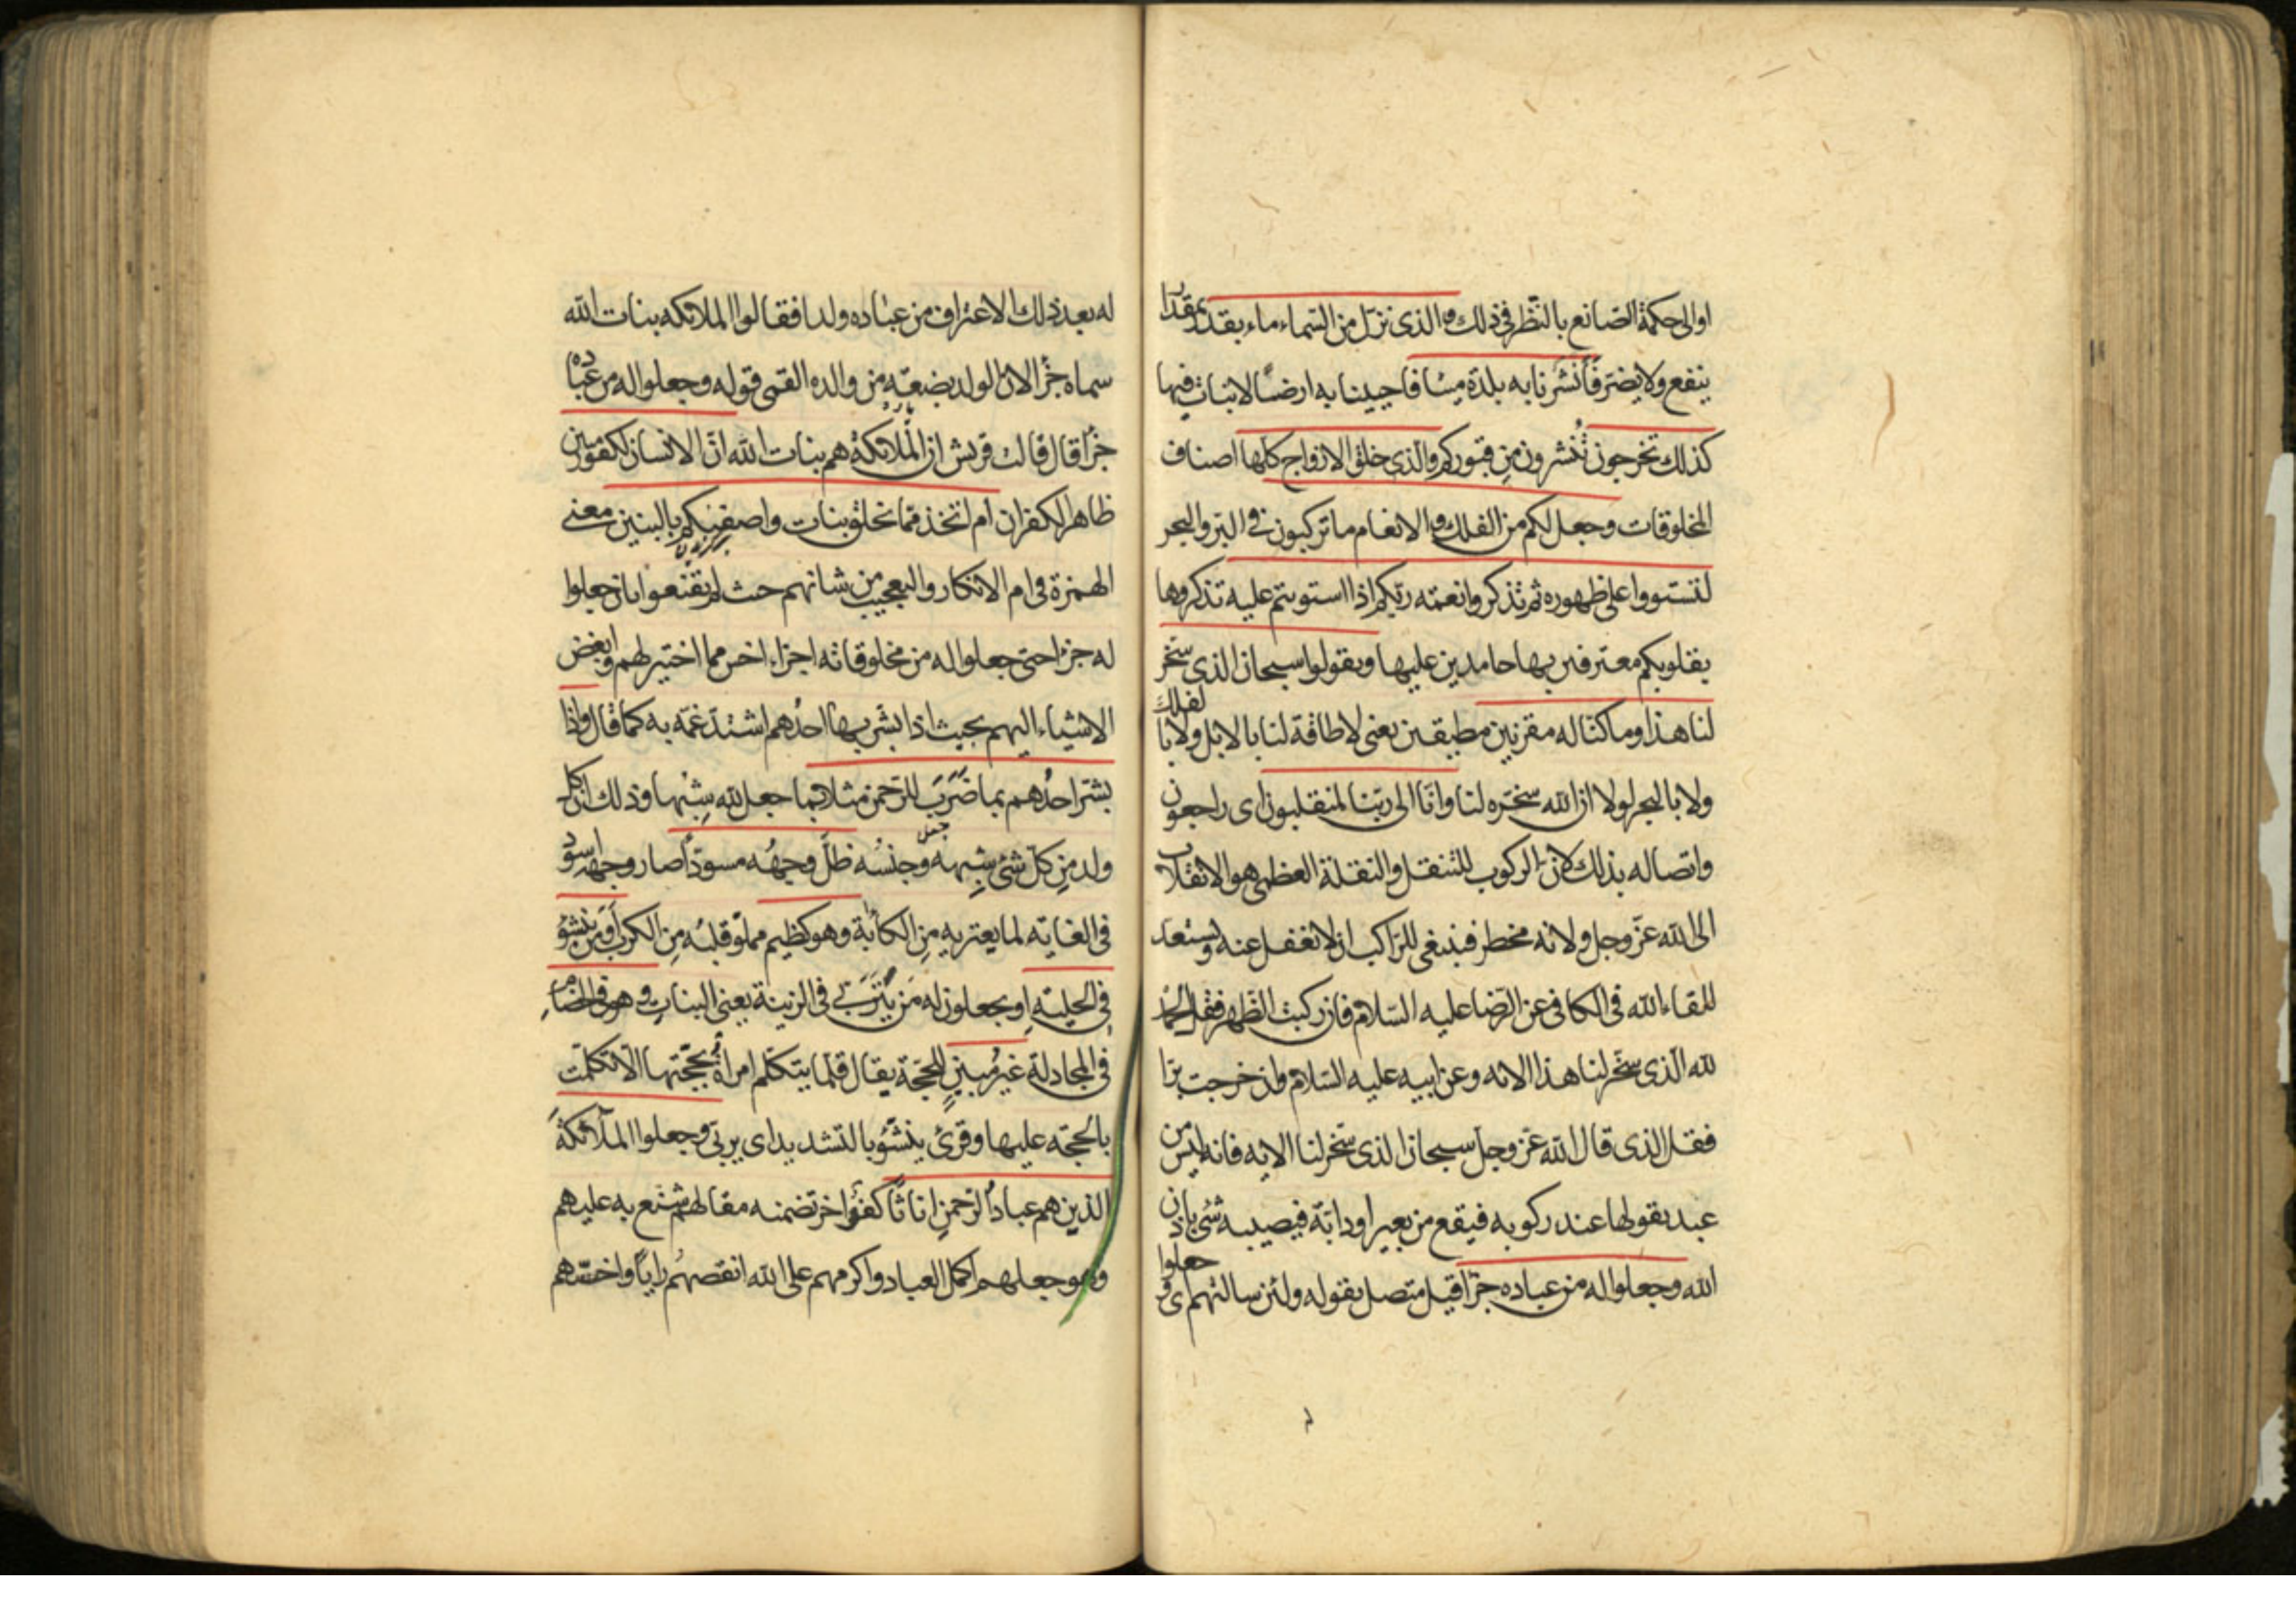 او الى حكمة الصانع بالنظر فى ذلك والذى نزل من السماء ماء بقدر بمقدار
ينفع ولا يضر فأنشرنا به بلدة ميتا فاحيينا به ارضا لا نبات فيها
كذلك تخرجون تنشرون من قبوركم والذى خلق الازواج كلها اصناف
المخلوقات وجعل لكم من الفلك والانعام ما تركبون فى البر والبحر
لتستووا على ظهوره ثم تذكروا نعمة ربكم اذا استويتم عليه تذكروها
بقلوبكم معترفين بها حامدين عليها وتقولوا سبحان الذى سخر
لنا هذا وما كنا له مقرنين مطيقين يعنى لا طاقة لنا بالابل ولا بالفلك
ولا بالبحر لولا ان الله سخره لنا وانا الى ربنا لمنقلبون اى راجعون
واتصاله بذلك لان الركوب للتنقل والنقلة العظمى هو الانقلاب
الى الله عز وجل ولانه مخطر فينبغى للراكب ان لا يغفل عنه ويستعد
للقاء الله فى الكافى عن الرضا عليه السلام فان ركبت الظهر فقل الحمد
لله الذى سخر لنا هذا الاية وعن ابيه عليه السلام وان خرجت برا
فقل الذى قال الله عز وجل سبحان الذى سخر لنا الاية فانه ليس من
عبد يقولها عند ركوبه فيقع من بعير او دابة فيصيبه شئ باذن
الله وجعلوا له من عباده جزأ قيل متصل بقوله ولئن سالتهم اى وجعلوا
له بعد ذلك الاعتراف من عباده ولدا فقالوا الملائكة بنات الله
سماه جزأ لان الولد بضعة من والده القمى قوله وجعلوا له من عباده
جزأ قال قالت قريش ان الملائكة هم بنات الله ان الانسان لكفور مبين
ظاهر الكفران ام اتخذ مما يخلق بنات واصفيكم بالبنين معنى
الهمزة فى ام الانكار والتعجيب من شانهم حيث لم يقنعوا بان جعلوا
له جزأ حتى جعلوا له من مخلوقاته اجزاء اخس مما اختير لهم وابغض
الاشياء اليهم بحيث اذا بشر بها احدهم اشتد غمه به كما قال واذا
بشر احدهم بما ضرب للرحمن مثلا بما جعل لله شبها وذلك ان كل
ولد من كل شئ شبهه وجنسه ظل وجهه مسودا صار وجهه اسود
فى الغاية لما يعتريه من الكآبة وهو كظيم مملو قلبه من الكرب أومن ينشؤ
فى الحلية او يجعلون له من يتربى فى الزينة يعنى البنات وهو فى الخصام
فى المجادلة غير مبين للحجة يقال قلما يتكلم امرأة بحجتها الا تكلمت
بالحجة عليها وقرئ ينشؤ بالتشديد اى يربى وجعلوا الملآئكة
الذين هم عباد الرحمن اناثا كفر اخر تضمنه مقالهم شنع به عليهم
وهو جعلهم اكمل العباد واكرمهم على الله انقصهم رايا واخسهم